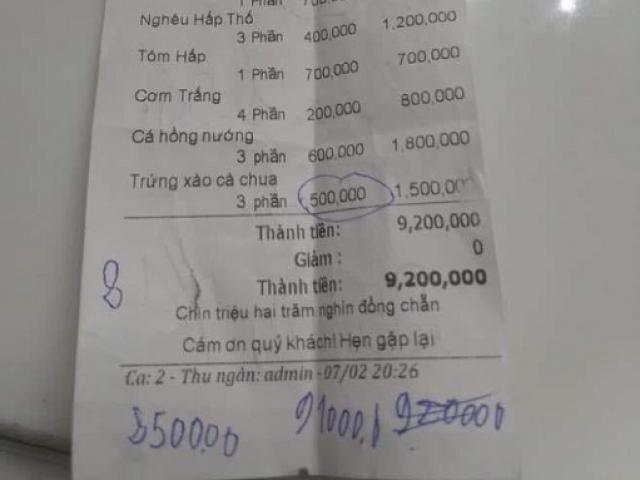 1 Phần 700,000
Nghêu Hấp Thố
3 Phần 400,000 1,200,000
Tôm Hấp
1 Phần 700,000 700,000
Cơm Trắng
4 Phần 200,000 800,000
Cá hồng nướng
3 phần 600,000 1,800,000
Trứng xào cà chua
3 phần 500,000 1,500,000
Thành tiền: 9,200,000
Giảm : 0
Thành tiền: 9,200,000
8
Chín triệu hai trăm nghìn đồng chẵn
Cám ơn quý khách! Hẹn gặp lại
Ca: 2 - Thu ngân: admin - 07/02 20:26